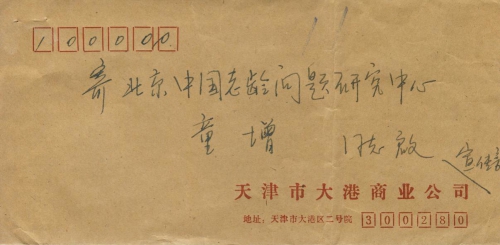 100000
寄北京中国老龄问题研究中心
童增 同志启
天津市大港商业公司
地址：天津市大港区二号院 300280